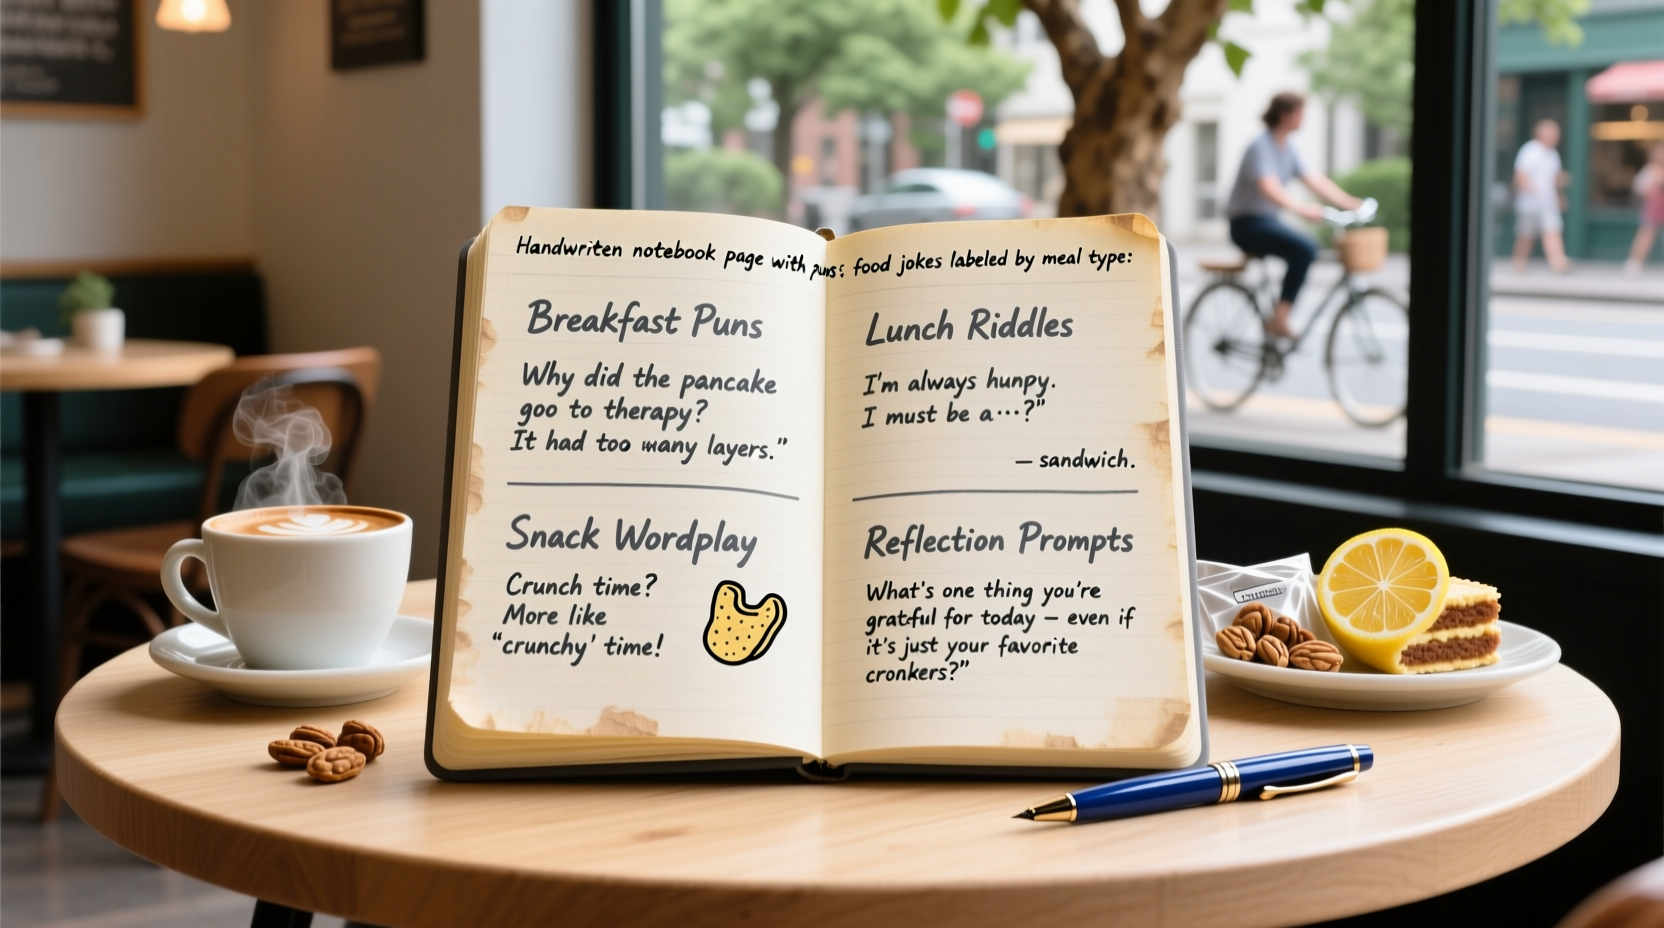 Handwriten notebook page with puns: food jokes labeled by meal type:
Breakfast Puns
Why did the pancake
goo to therapy?
It had too many layers."
Snack Wordplay
Crunch time?
More like
"crunchy' time!
Lunch Riddles
I'm always hunpy.
I must be a...?"
— sandwich.
Reflection Prompts
What's one thing you're
gratful for today — even if
it's just your favorite
cronkers?"